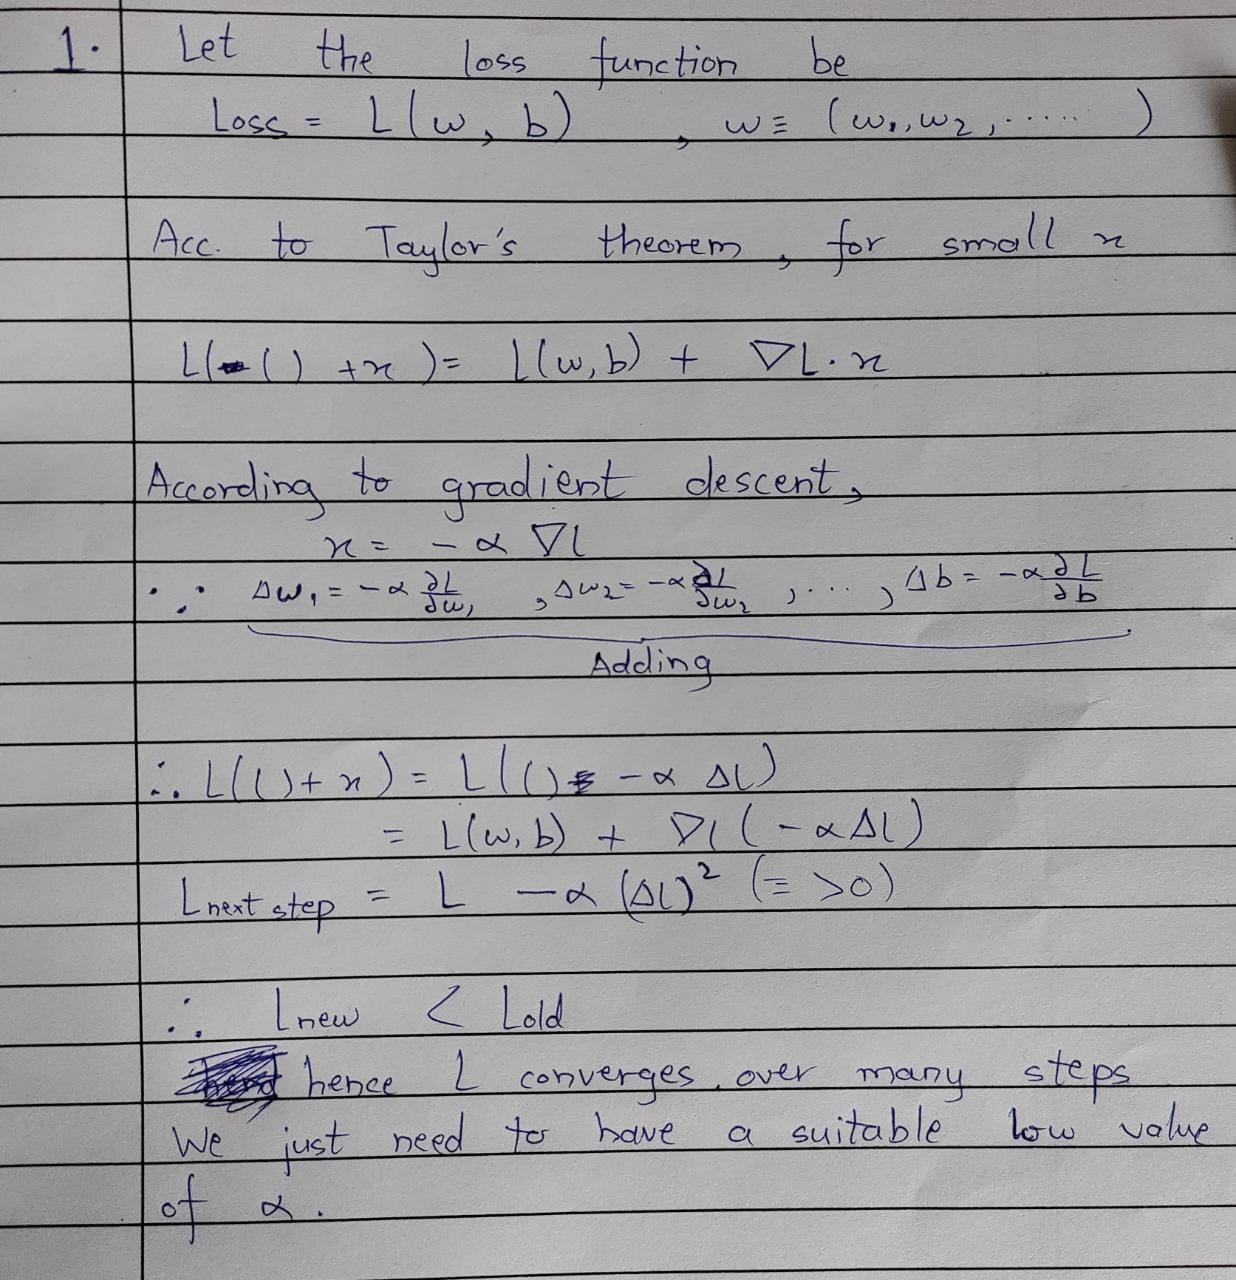 1. Let the loss function be
Loss = L(w, b) , w ≡ (w₁, w₂, ......)
Acc. to Taylor's theorem, for small x
L(() + x) = L(w, b) + ∇L . x
According to gradient descent,
x = - α ∇L
∴ Δw₁ = -α ∂L/∂w₁ , Δw₂ = -α ∂L/∂w₂ , ...., Δb = -α ∂L/∂b
Adding
∴ L(() + x) = L(() - α ΔL)
= L(w, b) + ∇L (-αΔL)
L next step = L - α (ΔL)² (= >0)
∴ Lnew < Lold
hence L converges over many steps
We just need to have a suitable low value
of α.